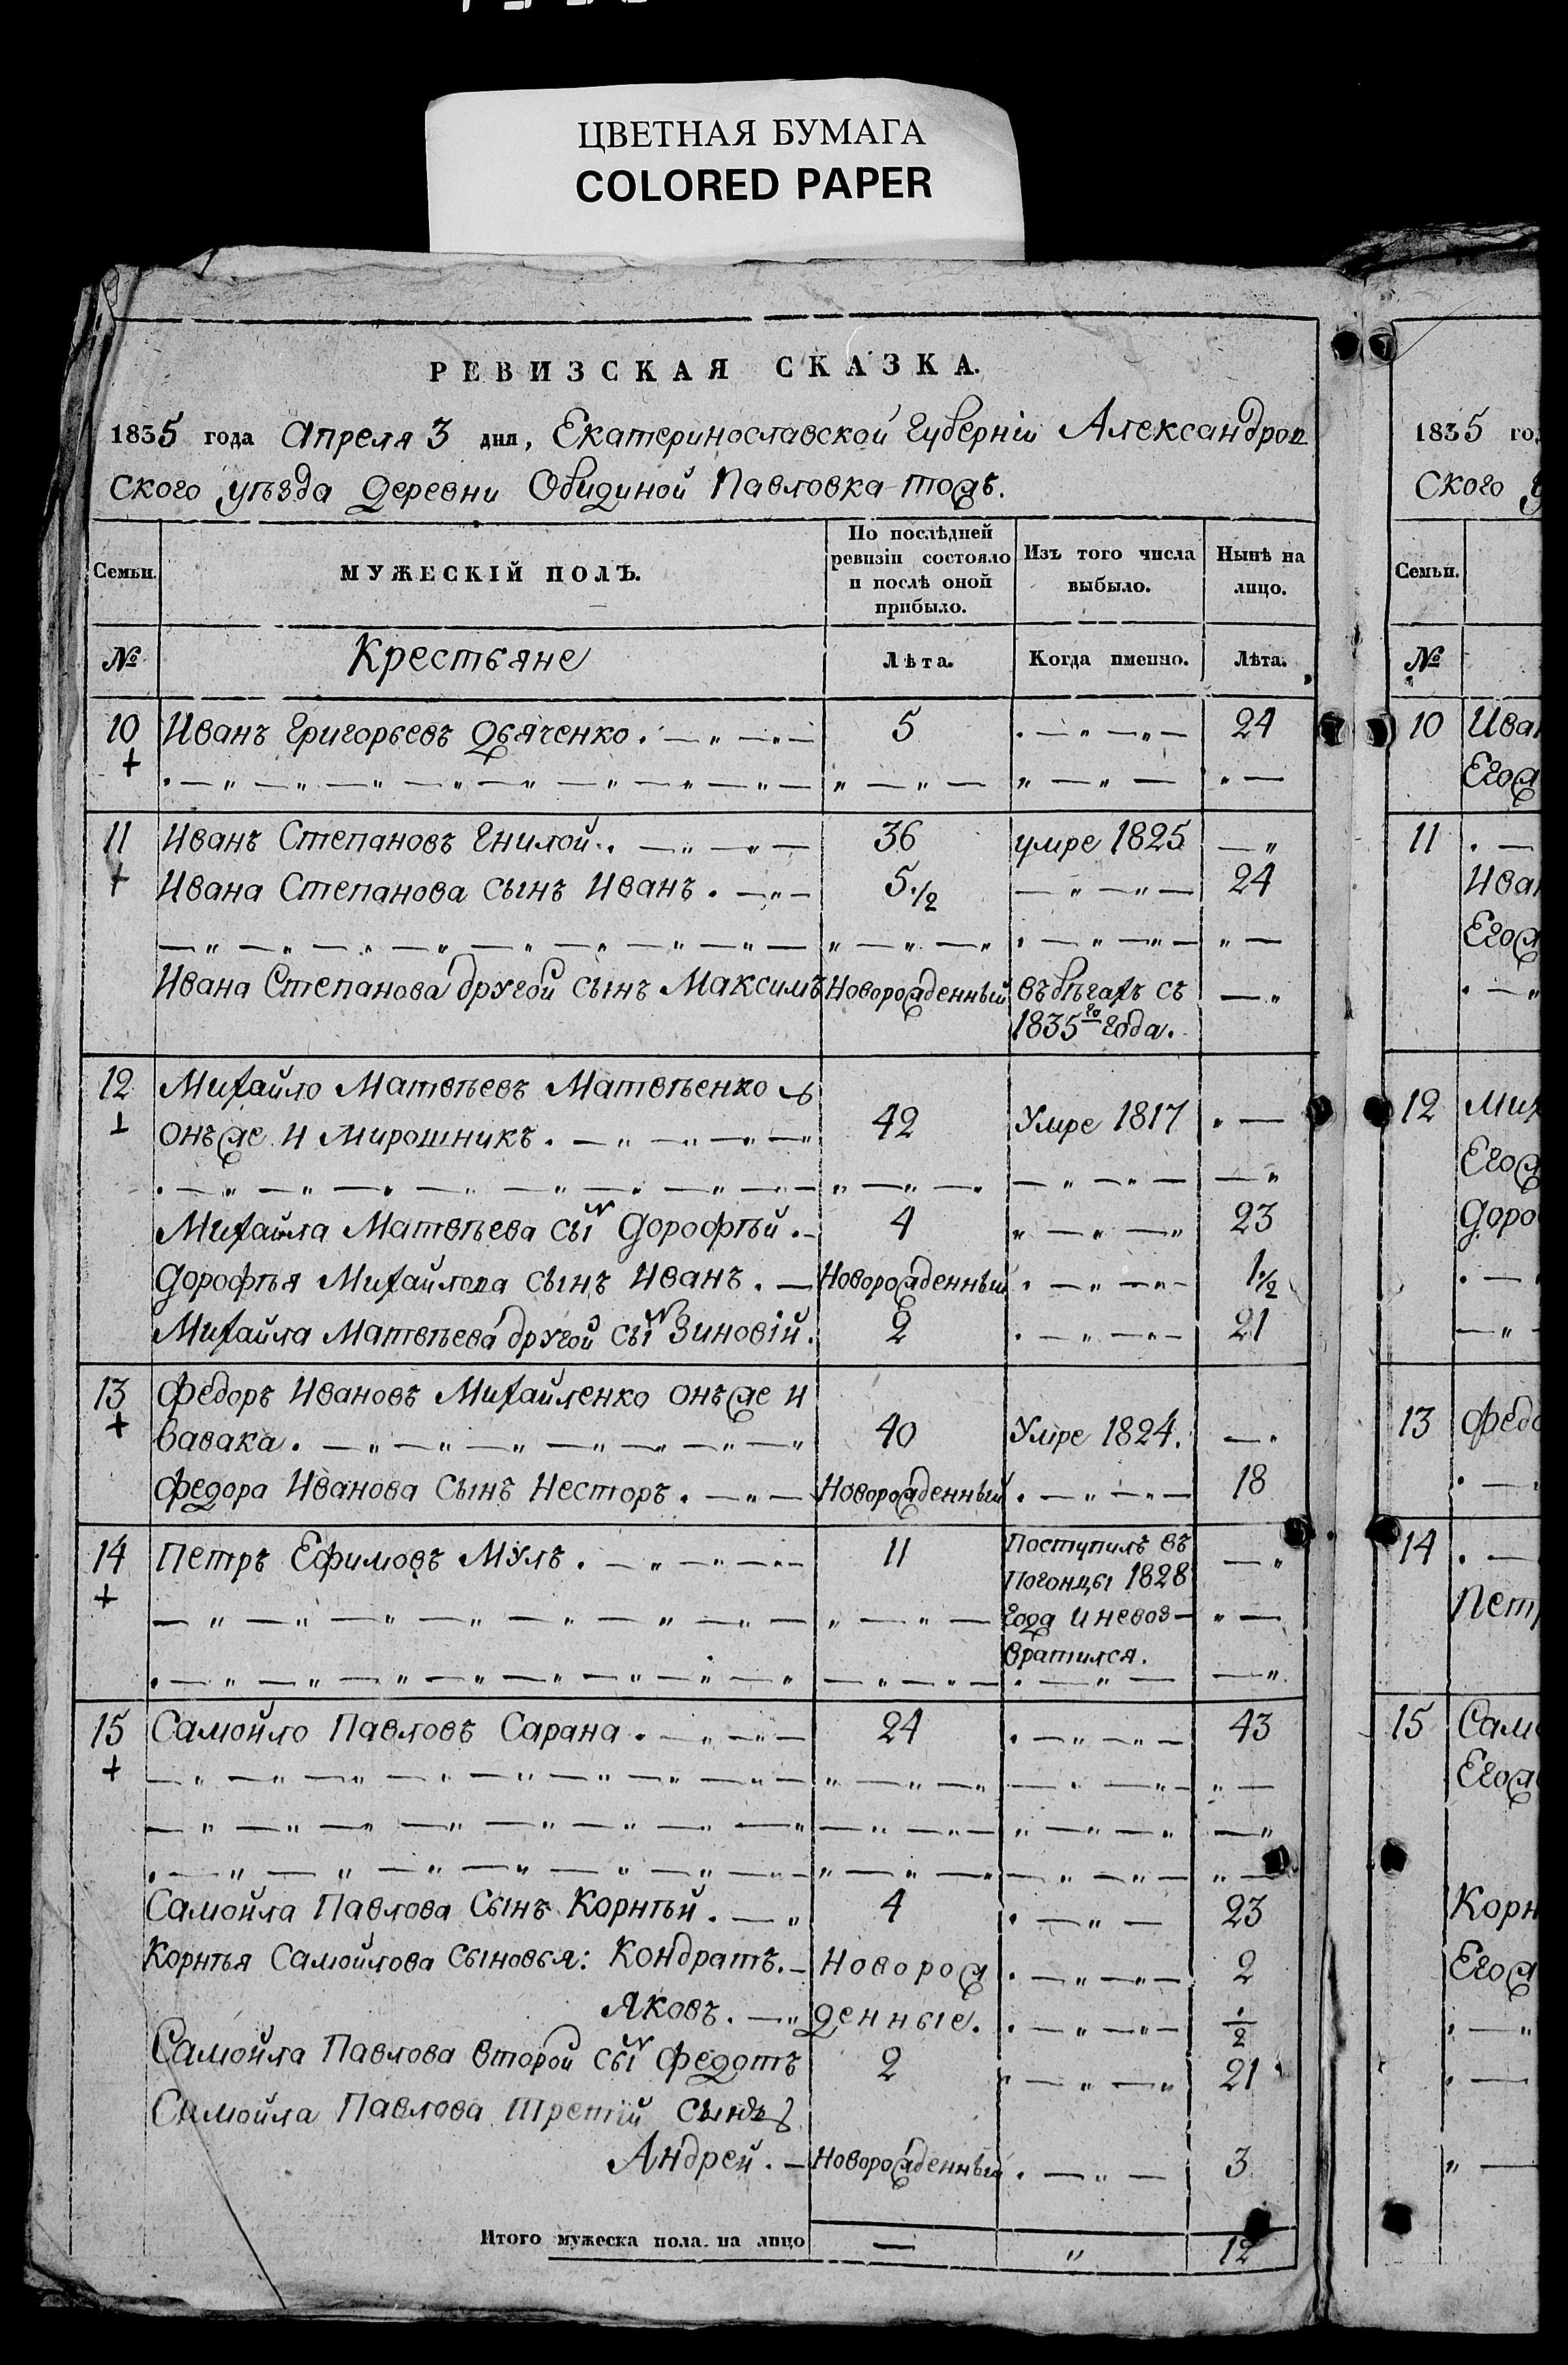 ЦВЕТНАЯ БУМАГА
COLORED PAPER
РЕВИЗСКАЯ СКАЗКА.
1835 года Апреля 3 дня, Екатеринославской Губерніи Александров
ского уѣзда Деревни Обидиной Павловка тожъ.
Семьи. МУЖЕСКІЙ ПОЛЪ. По послѣдней ревизіи состояло и послѣ оной прибыло. Изъ того числа выбыло. Нынѣ на лицо.
№ Крестьяне Лѣта. Когда именно. Лѣта.
10 Иванъ Григорьевъ Дьяченко. 5 24
+
11 Иванъ Степановъ Гнилой. 36 умре 1825
+ Ивана Степанова сынъ Иванъ. 5 1/2 24
Ивана Степанова другой сынъ Максимъ Новорожденный въ бѣгахъ съ
1835го года.
12 Михайло Матвѣевъ Матвѣенко
онъ же и Мирошникъ. 42 Умре 1817
Михайла Матвѣева сын Дорофѣй. 4 23
Дорофѣя Михайлова сынъ Иванъ. Новорожденный 1 1/2
Михайла Матвѣева другой сын Зиновій. 2 21
13 Федоръ Ивановъ Михайленко онъ же и
+ Вавака. 40 Умре 1824.
Федора Иванова сынъ Несторъ. Новорожденный 18
14 Петръ Ефимовъ Мулъ. 11 Поступилъ въ
+ Погонцы 1828
года и невоз-
вратился.
15 Самойло Павловъ Сарана. 24 43
+
Самойла Павлова Сынъ Корнѣй. 4 23
Корнѣя Самойлова сыновья: Кондратъ. Новорож 2
Яковъ. денные. 1/2
Самойла Павлова второй сын Федотъ 2 21
Самойла Павлова Третій сынъ
Андрей. Новорожденный 3
Итого мужеска пола на лицо 12
1835 год
ского у
Семьи.
№
10 Иван
Егож
11
Иван
Егож
12 Мих
Егож
Доро
13 Федо
14
Петр
15 Само
Егож
Корн
Егож